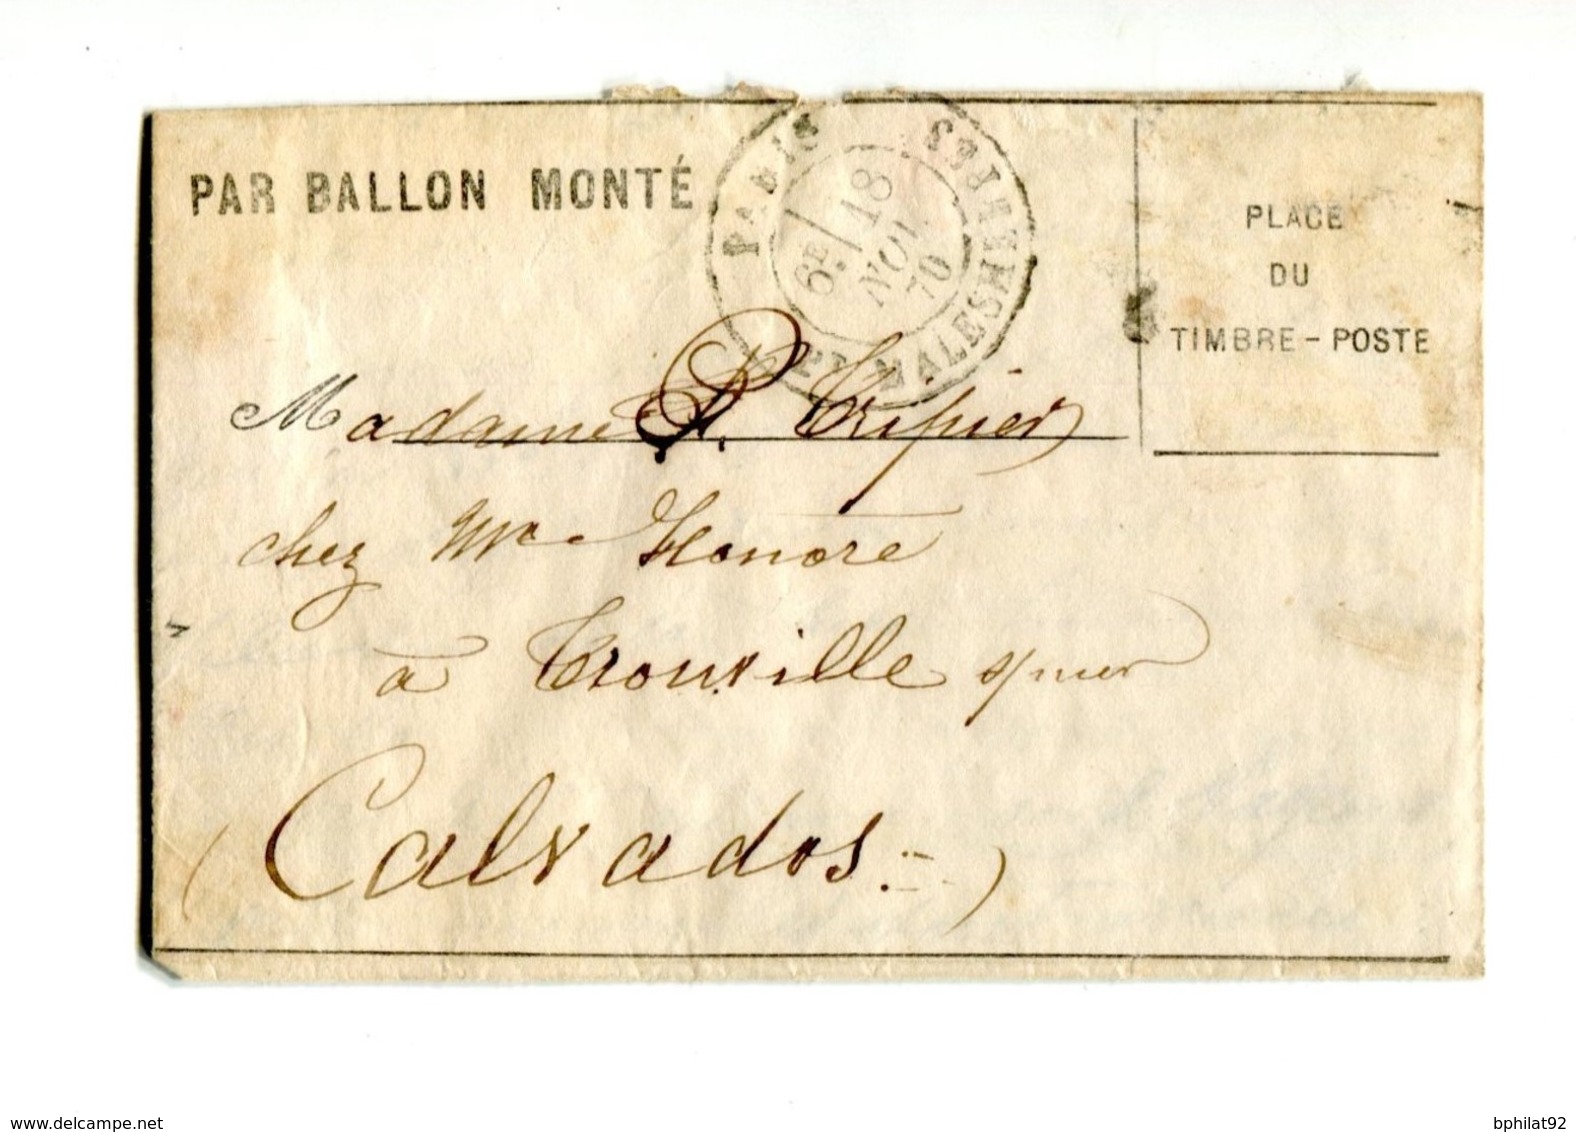 PAR BALLON MONTÉ
PARIS
Bt MALESHERBES
6E / 18
NOV.
70
PLACE
DU
TIMBRE-POSTE
Madame P. Tripier
chez Mr Honoré
à Trouville s/mer
(Calvados.)
www.delcampe.net
bphilat92